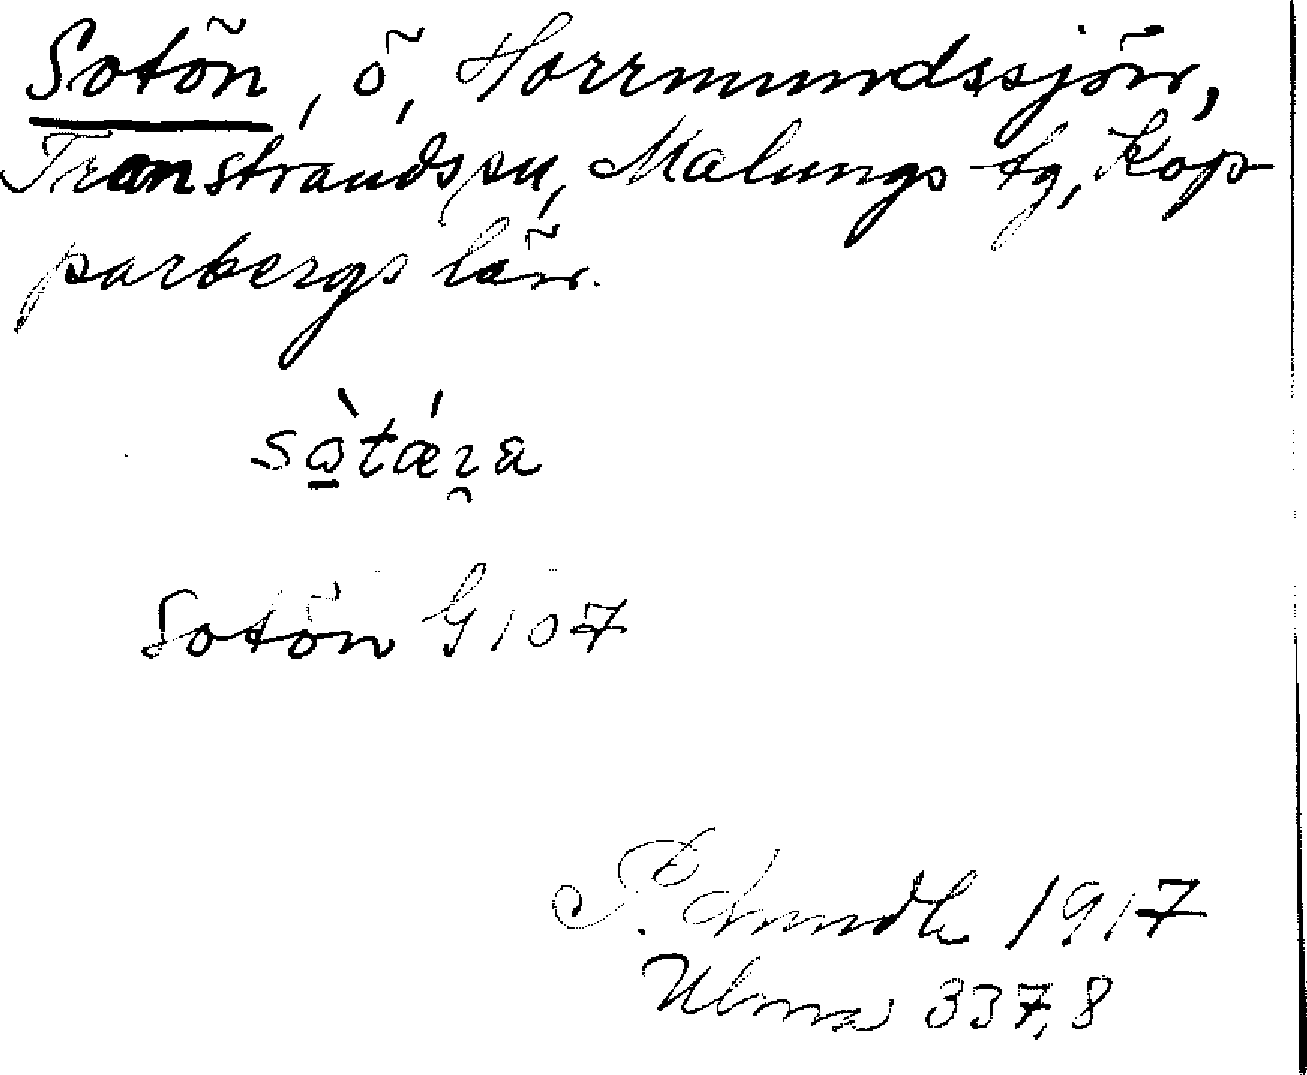 Sotön, ö, Horrmundssjön,
Transtrands sn, Malungs tg, Kop-
parbergs län.
Sotön G 107
P. 1917
Ulma 337,8